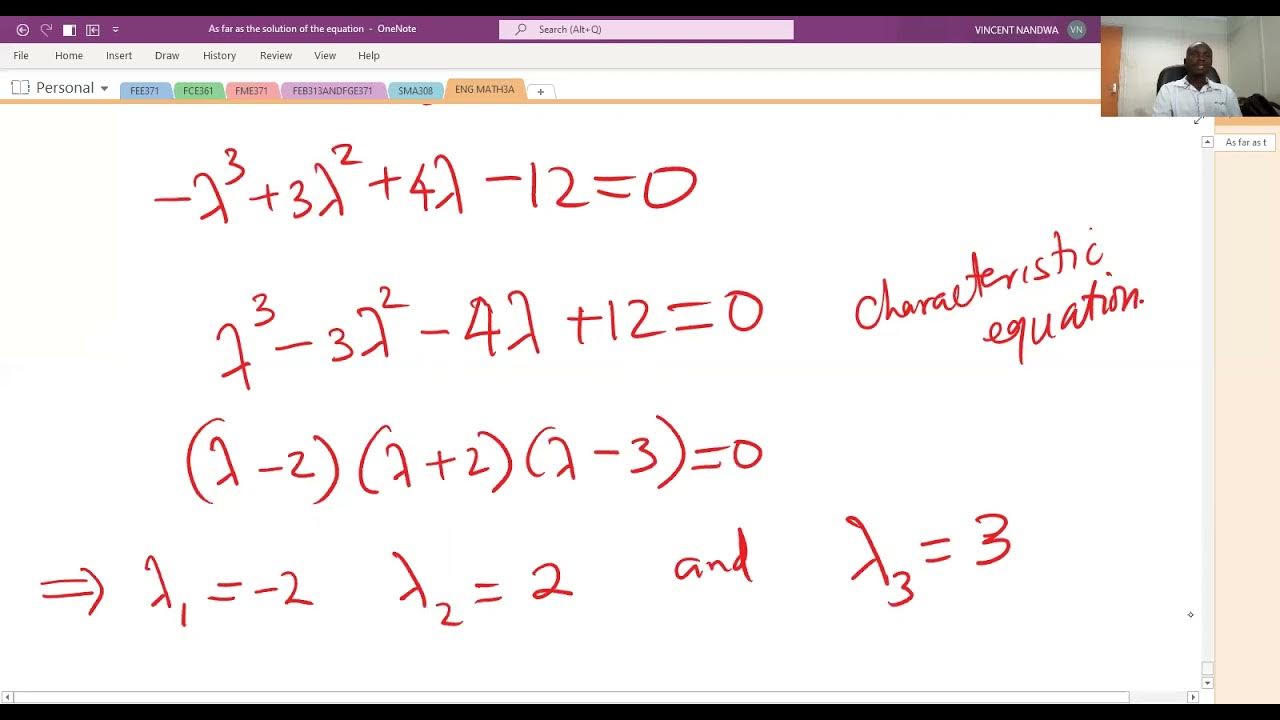 As far as the solution of the equation - OneNote
Search (Alt+Q)
VINCENT NANDWA
VN
File Home Insert Draw History Review View Help
Personal
FEE371 FCE361 FME371 FEB313ANDFGE371 SMA308 ENG MATH3A +
As far as t
-λ³+3λ²+4λ-12=0
λ³-3λ²-4λ+12=0
characteristic
equation.
(λ-2)(λ+2)(λ-3)=0
⇒ λ₁=-2 λ₂=2 and λ₃=3